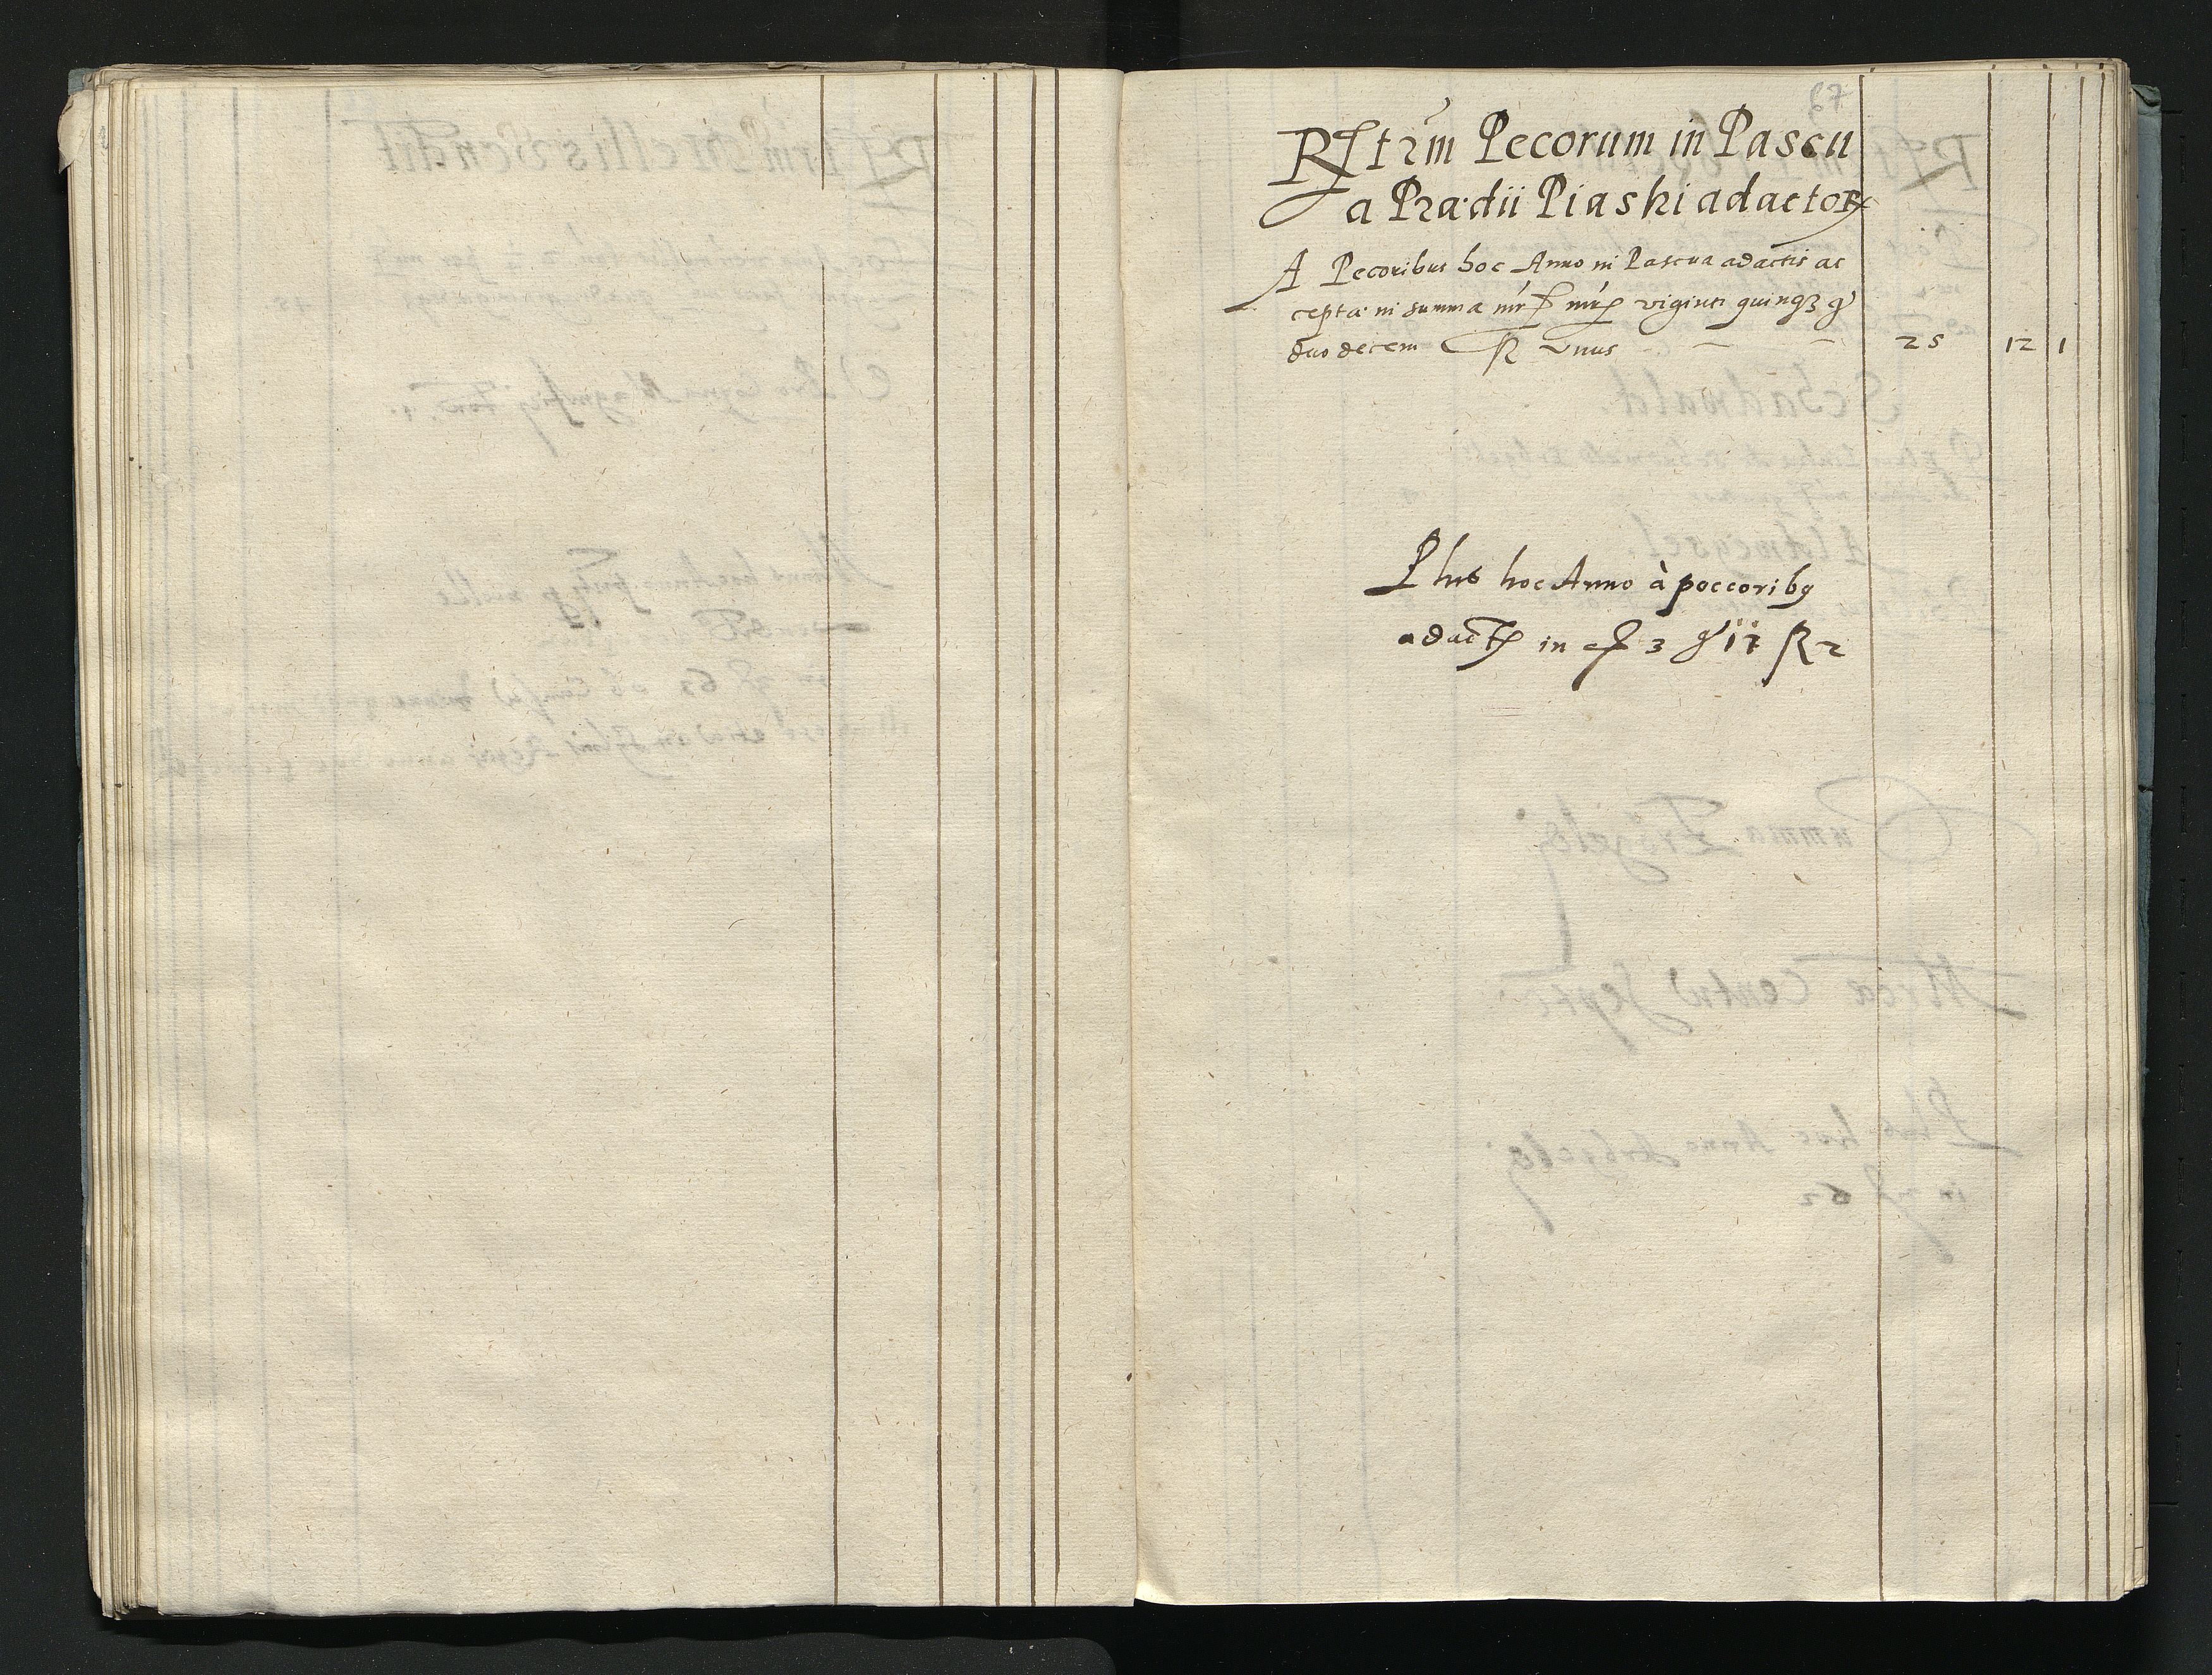 67
Rſtrm Pecorum in Pascu
a Prædii Piaski adactoꝝ
A Pecoribus hoc Anno in Pascua adactis ac
cepta in summa viginti quinqꝫ gͬ
duodecem unus 25 12 1
Plus hoc Anno à peccoribꝰ
adact in 3 gͬ 17 2